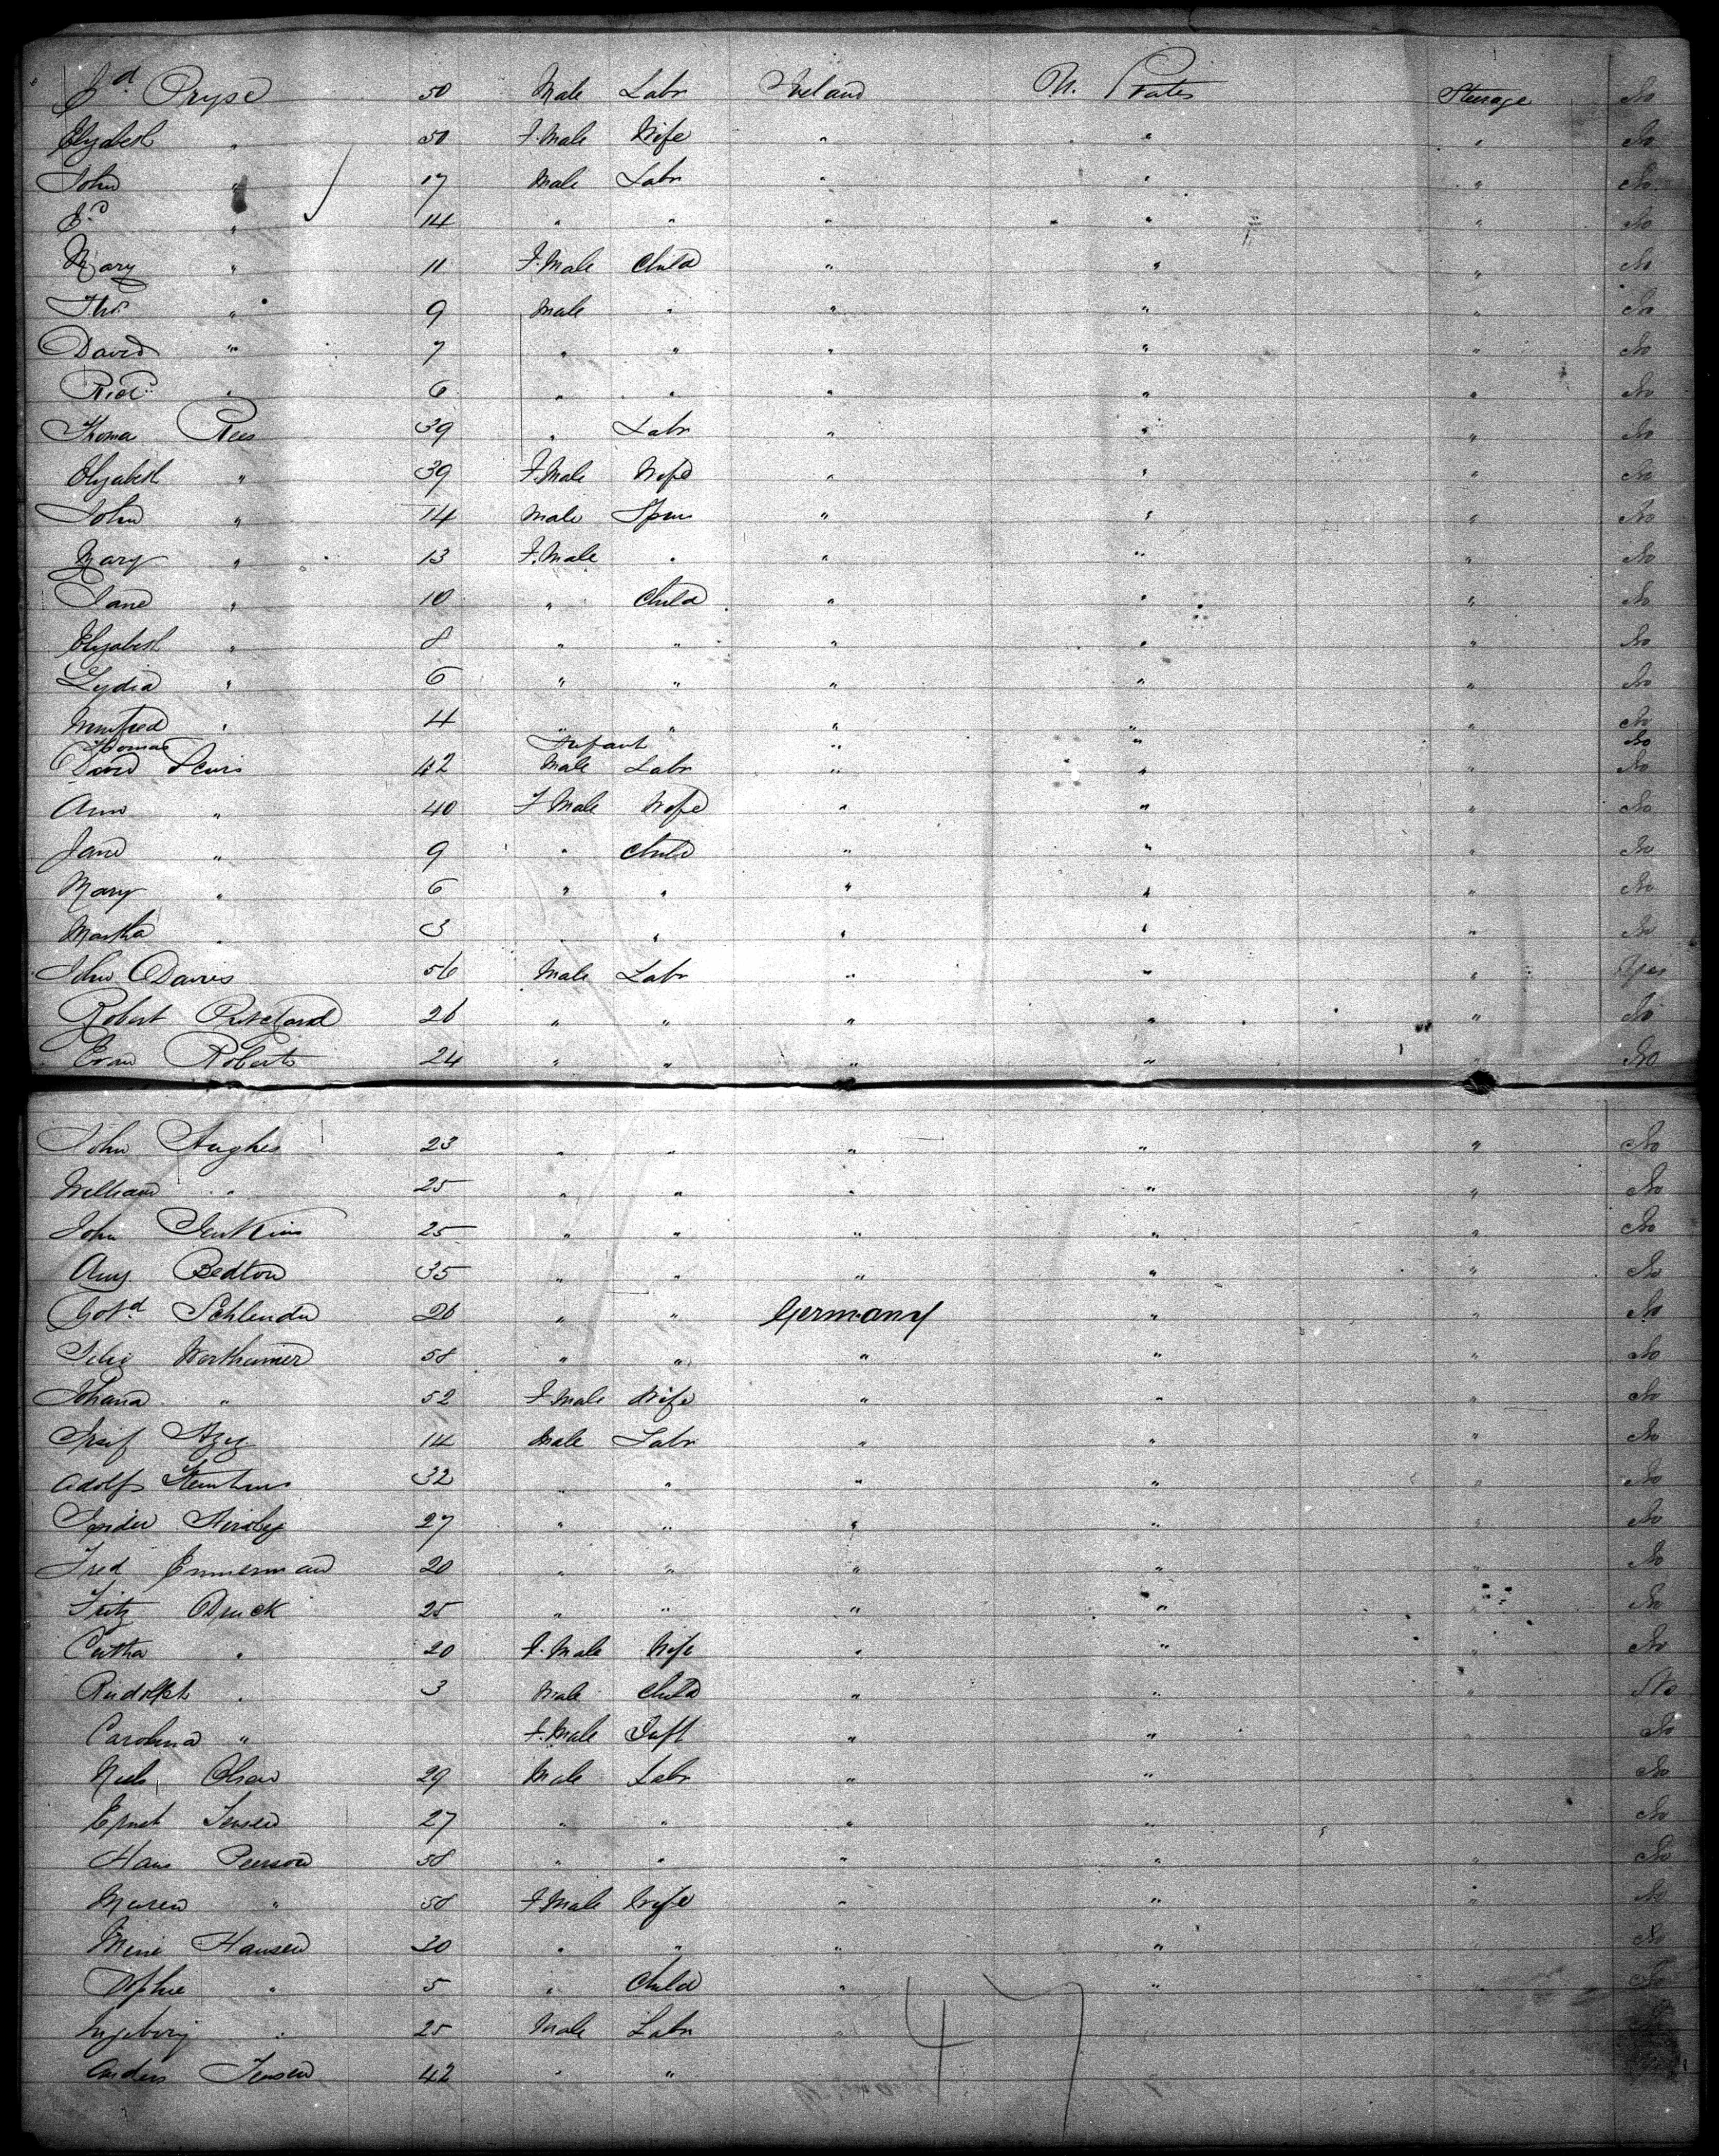 Ed Pryse 50 Male Labr Ireland U. States Steerage No
Elizabeth " 50 F. Male Wife " " " No
John " 17 Male Labr " " " No
Ed " 14 " " " " " No
Mary " 11 F. Male Child " " " No
Thos " 9 Male " " " " No
David " 7 " " " " " No
Richd " 6 " " " " " No
Thoma Rees 39 " Labr " " " No
Elizabeth " 39 F. Male Wife " " " No
John " 14 Male Spin " " " No
Mary " 13 F. Male " " " " No
Jane " 10 " Child " " " No
Elizabeth " 8 " " " " " No
Lydia " 6 " " " " " No
Winifred " 4 " " " " " No
Thomas Infant " " No
David Lewis 42 Male Labr " " " No
Ann " 40 F Male Wife " " " No
Jane " 9 " Child " " " No
Mary " 6 " " " " " No
Martha " 3 " " " " " No
John Davies 56 Male Labr " " " Yes
Robert Pritchard 26 " " " " " No
Evan Roberts 24 " " " " " No
John Hughes 23 " " " " " No
William " 25 " " " " " No
John Jenkins 25 " " " " " No
Aug. Bedton 35 " " " " " No
Gotd Schlender 26 " " Germany " " No
Wertheimer 58 " " " " " No
Johana " 52 F. Male Wife " " " No
14 Male Labr " " " No
Adolf 32 " " " " " No
27 " " " " " No
Fred Emmerman 20 " " " " " No
Fritz Druck 25 " " " " " No
" 20 F. Male Wife " " " No
Rudolph " 3 Male Child " " " No
Carolina " F. Male Inft " " " No
Niels Olsen 29 Male Labr " " " No
Ernst Jensen 27 " " " " " No
Hans Peerson 58 " " " " " No
Maren " 58 F Male Wife " " " No
Mine Hansen 30 " " " " " No
Sophie " 5 " Child " " " No
Ingeborg " 25 Male Labr " "
Anders Jensen 42 " "
47